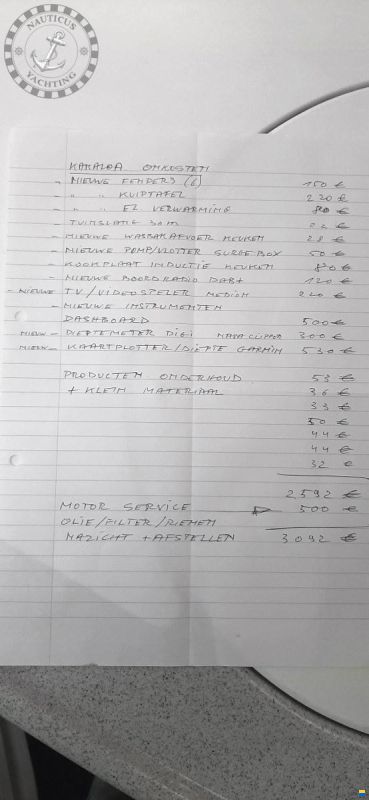 NAUTICUS
YACHTING
KAKALOA OMKOSTEN
- NIEUWE FENDERS (6) 150 €
- " " KUIPTAFEL 220 €
- " " EL VERWARMING 80 €
- TUINSLANG 30m 22 €
- NIEUWE WASBAKAFVOER KEUKEN 28 €
- NIEUWE POMP/VLOTTER SURGEBOX 50 €
- KOOKPLAAT INDUCTIE KEUKEN 80 €
- NIEUWE BOORDRADIO DAB+ 120 €
- NIEUWE T.V/VIDEOSPELER MEDION 240 €
- NIEUWE INSTRUMENTEN
DASHBOARD 500 €
NIEUW - DIEPTEMETER DIGI NASA CLIPPER 300 €
NIEUW - KAARTPLOTTER/DIEPTE GARMIN 530 €
PRODUCTEN ONDERHOUD 53 €
+ KLEIN MATERIAAL 36 €
33 €
50 €
44 €
44 €
32 €
2592 €
MOTOR SERVICE 500 €
OLIE/FILTER/RIEMEN
NAZICHT + AFSTELLEN 3092 €